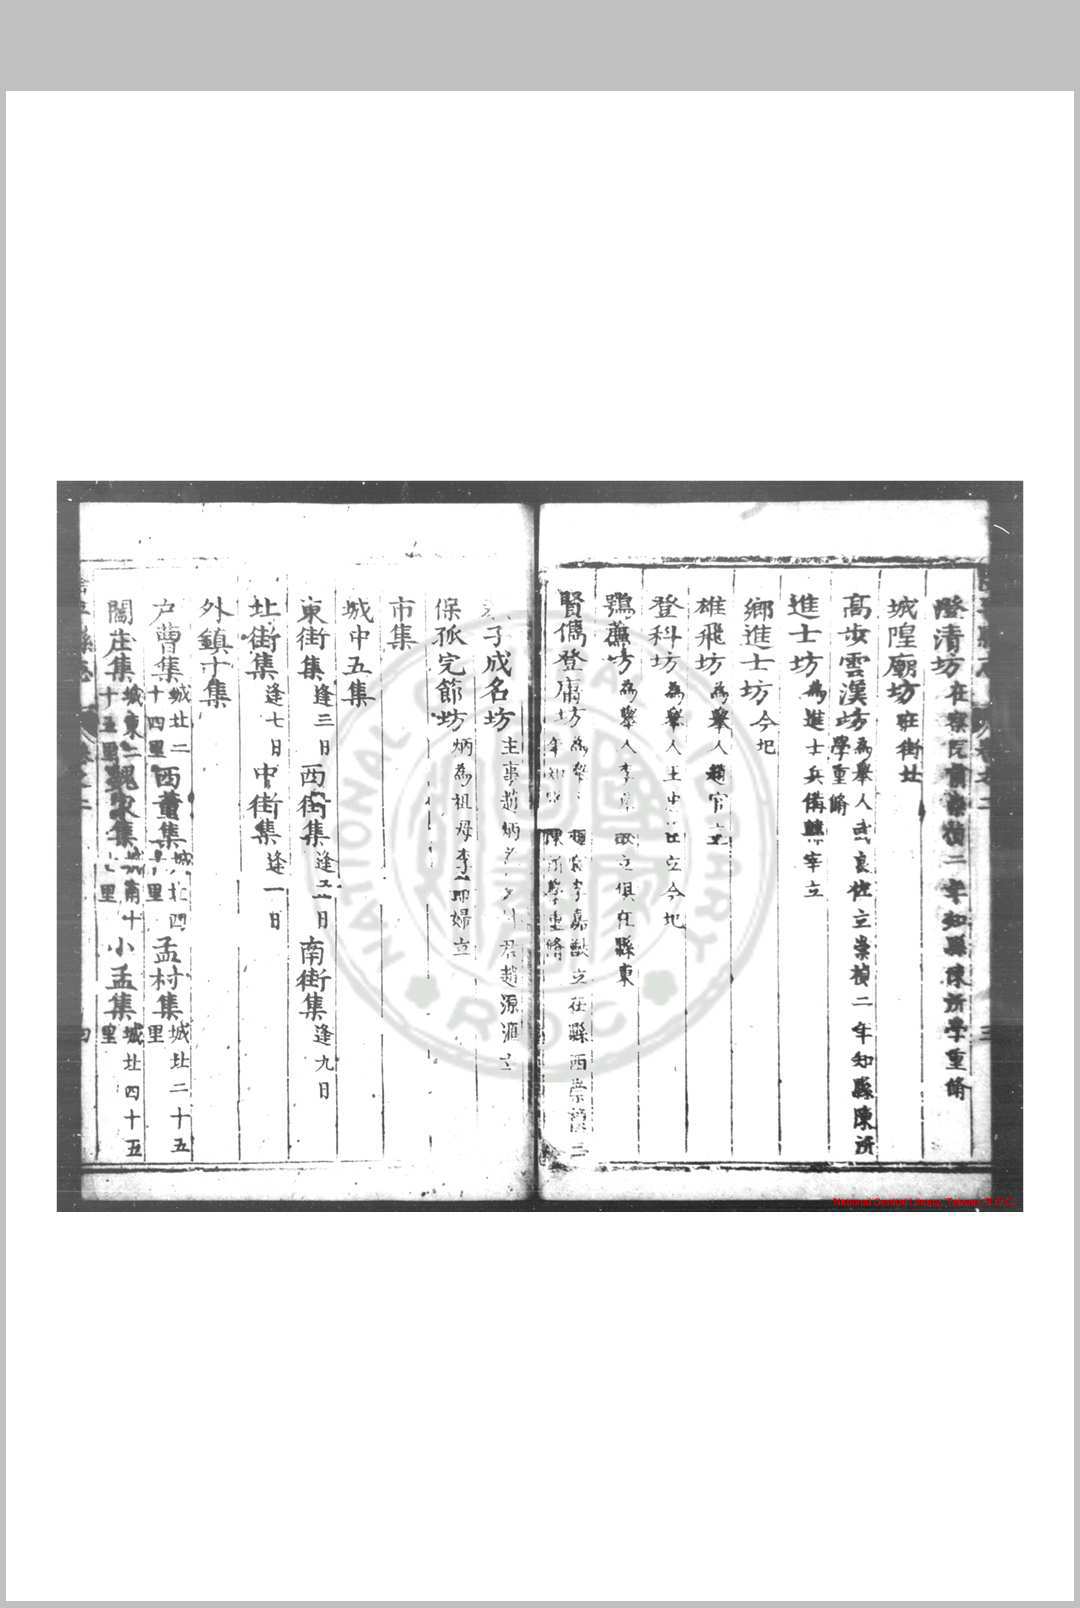 澄清坊在察院前崇禎二年知縣陳所學重脩
城隍廟坊在街北
高步雲漢坊為舉人武良佐立崇禎二年知縣陳所學重脩
進士坊為進士兵備魏宰立
鄉進士坊今圯
雄飛坊為舉人趙官立
登科坊為舉人王立今圯
鶚薦坊為舉人李立俱在縣東
賢儁登庸坊為舉李嘉猷立在縣西崇禎三年知縣陳所學重脩
子成名坊主事趙炳父趙源滙立
保孤完節坊炳為祖母李節婦立
市集
城中五集
東街集逢三日 西街集逢五日 南街集逢九日
北街集逢七日 中街集逢一日
外鎮十集
户曹集城北二十四里 西董集城北四里 孟村集城北二十五里
閻庄集城東二十五里 魏家集城南十里 小孟集城北四十五里
National Central Library, Taiwan, R.O.C.